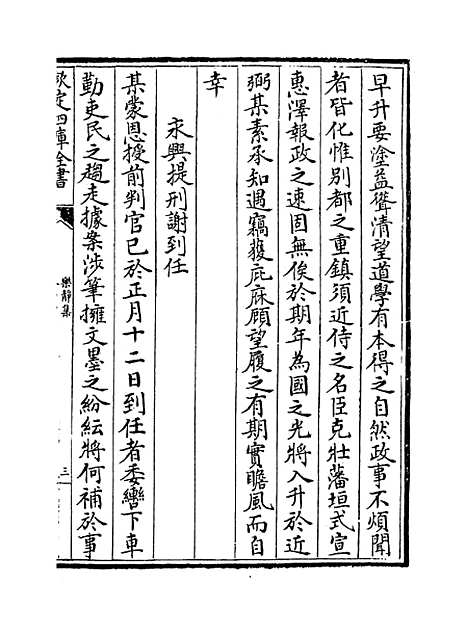 早升要塗益聳清望道學有本得之自然政事不煩聞
者皆化惟别都之重鎮須近侍之名臣克壯藩垣式宣
惠澤報政之速固無俟於期年為國之光將入升於近
弼某素承知遇竊獲庇庥顧望履之有期實瞻風而自
幸
永興提刑謝到任
某蒙恩授前判官已於正月十二日到任者委轡下車
勤吏民之趨走據案涉筆擁文墨之紛紜將何補於事
欽定四庫全書
樂靜集
三